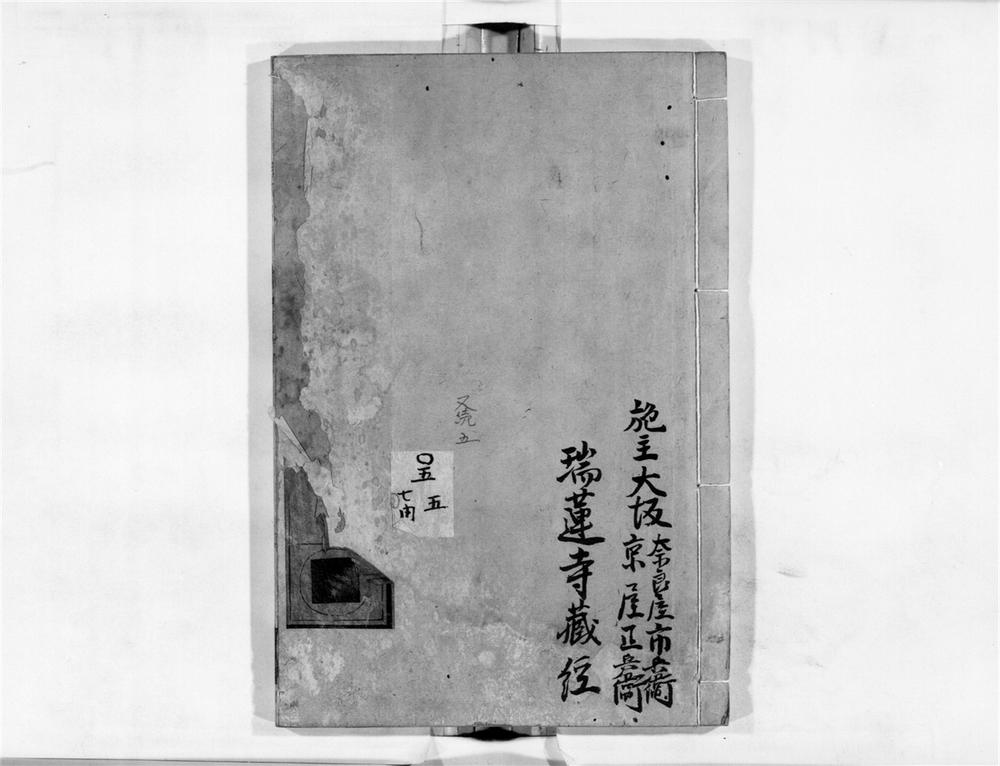 施主大坂
奈良屋市兵衛
京屋正兵衛
瑞蓮寺藏經
又完五
〇五
五
七内